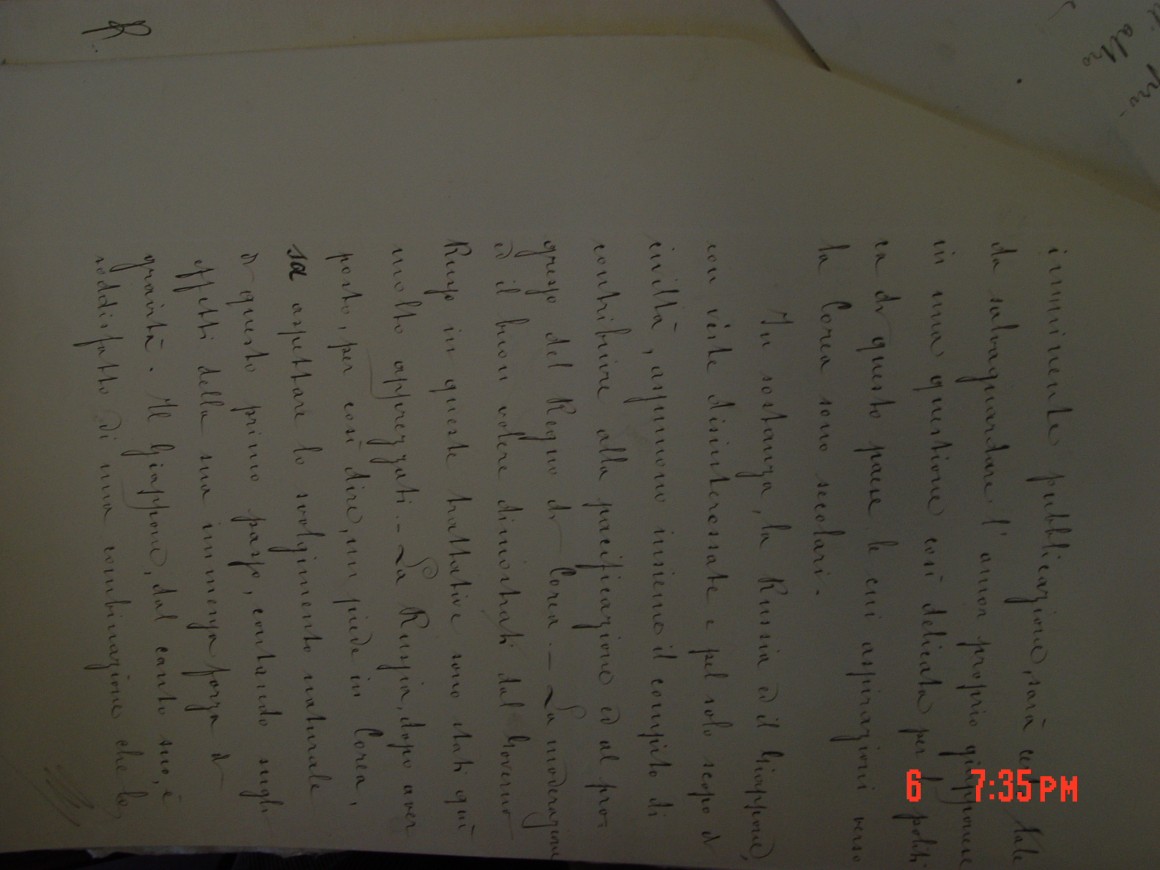 imminente pubblicazione, sarà tale
da salvaguardare l'amor proprio giapponese
in una questione così delicata per politi-
ca di questo paese le cui aspirazioni verso
la Corea sono secolari.
In sostanza, la Russia ed il Giappone,
con veste disinteressata e pel solo scopo di
civiltà, assumono insieme il compito di
contribuire alla pacificazione ed al pro-
gresso del Regno di Corea. - La moderazione
ed il buon volere dimostrati dal Governo
Russo in queste trattative sono stati quì
molto apprezzati. - La Russia, dopo aver
posto, per così dire, un piede in Corea,
sa aspettare lo svolgimento naturale
di questo primo passo, contando sugli
effetti della sua immensa forza di
gravità. Il Giappone, dal canto suo, è
soddisfatto di una combinazione che lo
6 7:35 PM
altro